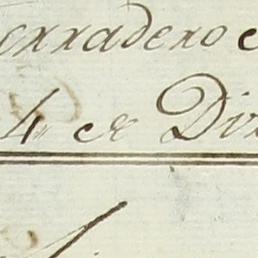 erradero
4 de Di